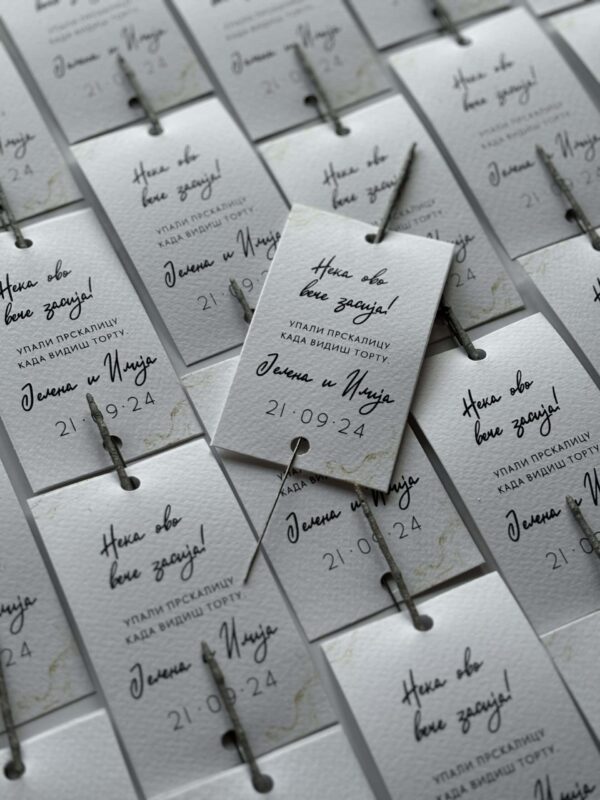 Нека ово
вече засија!
УПАЛИ ПРСКАЛИЦУ
КАДА ВИДИШ ТОРТУ.
Јелена и Илија
21·09·24